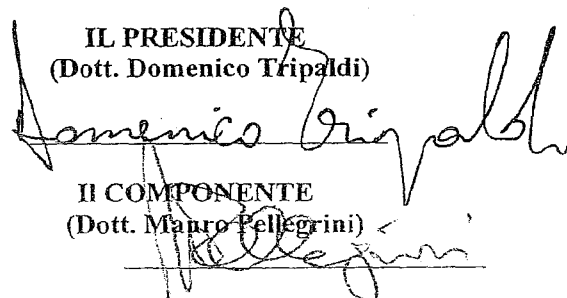 IL PRESIDENTE
(Dott. Domenico Tripaldi)
Domenico Tripaldi
Il COMPONENTE
(Dott. Mauro Pellegrini)
Pellegrini